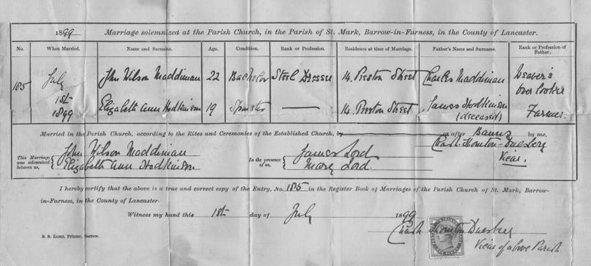 1899 Marriage solemnized at the Parish Church, in the Parish of St. Mark, Barrow-in-Furness, in the County of Lancaster.
No. When Married. Name and Surname. Age. Condition. Rank or Profession. Residence at time of Marriage. Father's Name and Surname. Rank or Profession of Father.
185 July 1st 1899 John Wilson Maddiman 22 Bachelor Steel Dresser 14 Preston Street Charles Maddiman Weaver's Over Looker
Elizabeth Ann Hodkinson 19 Spinster — 14 Preston Street James Hodkinson (deceased) Farmer
Married in the Parish Church, according to the Rites and Ceremonies of the Established Church, by or after Banns by me,
This Marriage was solemnized between us, John Wilson Maddiman Elizabeth Ann Hodkinson in the presence of us, James Lord Mary Lord Vicar.
I hereby certify that the above is a true and correct copy of the Entry, No. 185 in the Register Book of Marriages of the Parish Church of St. Mark, Barrow-
in-Furness, in the County of Lancaster.
Witness my hand this 1st day of July 1899
Vicar of above Parish
Printer, Barrow.